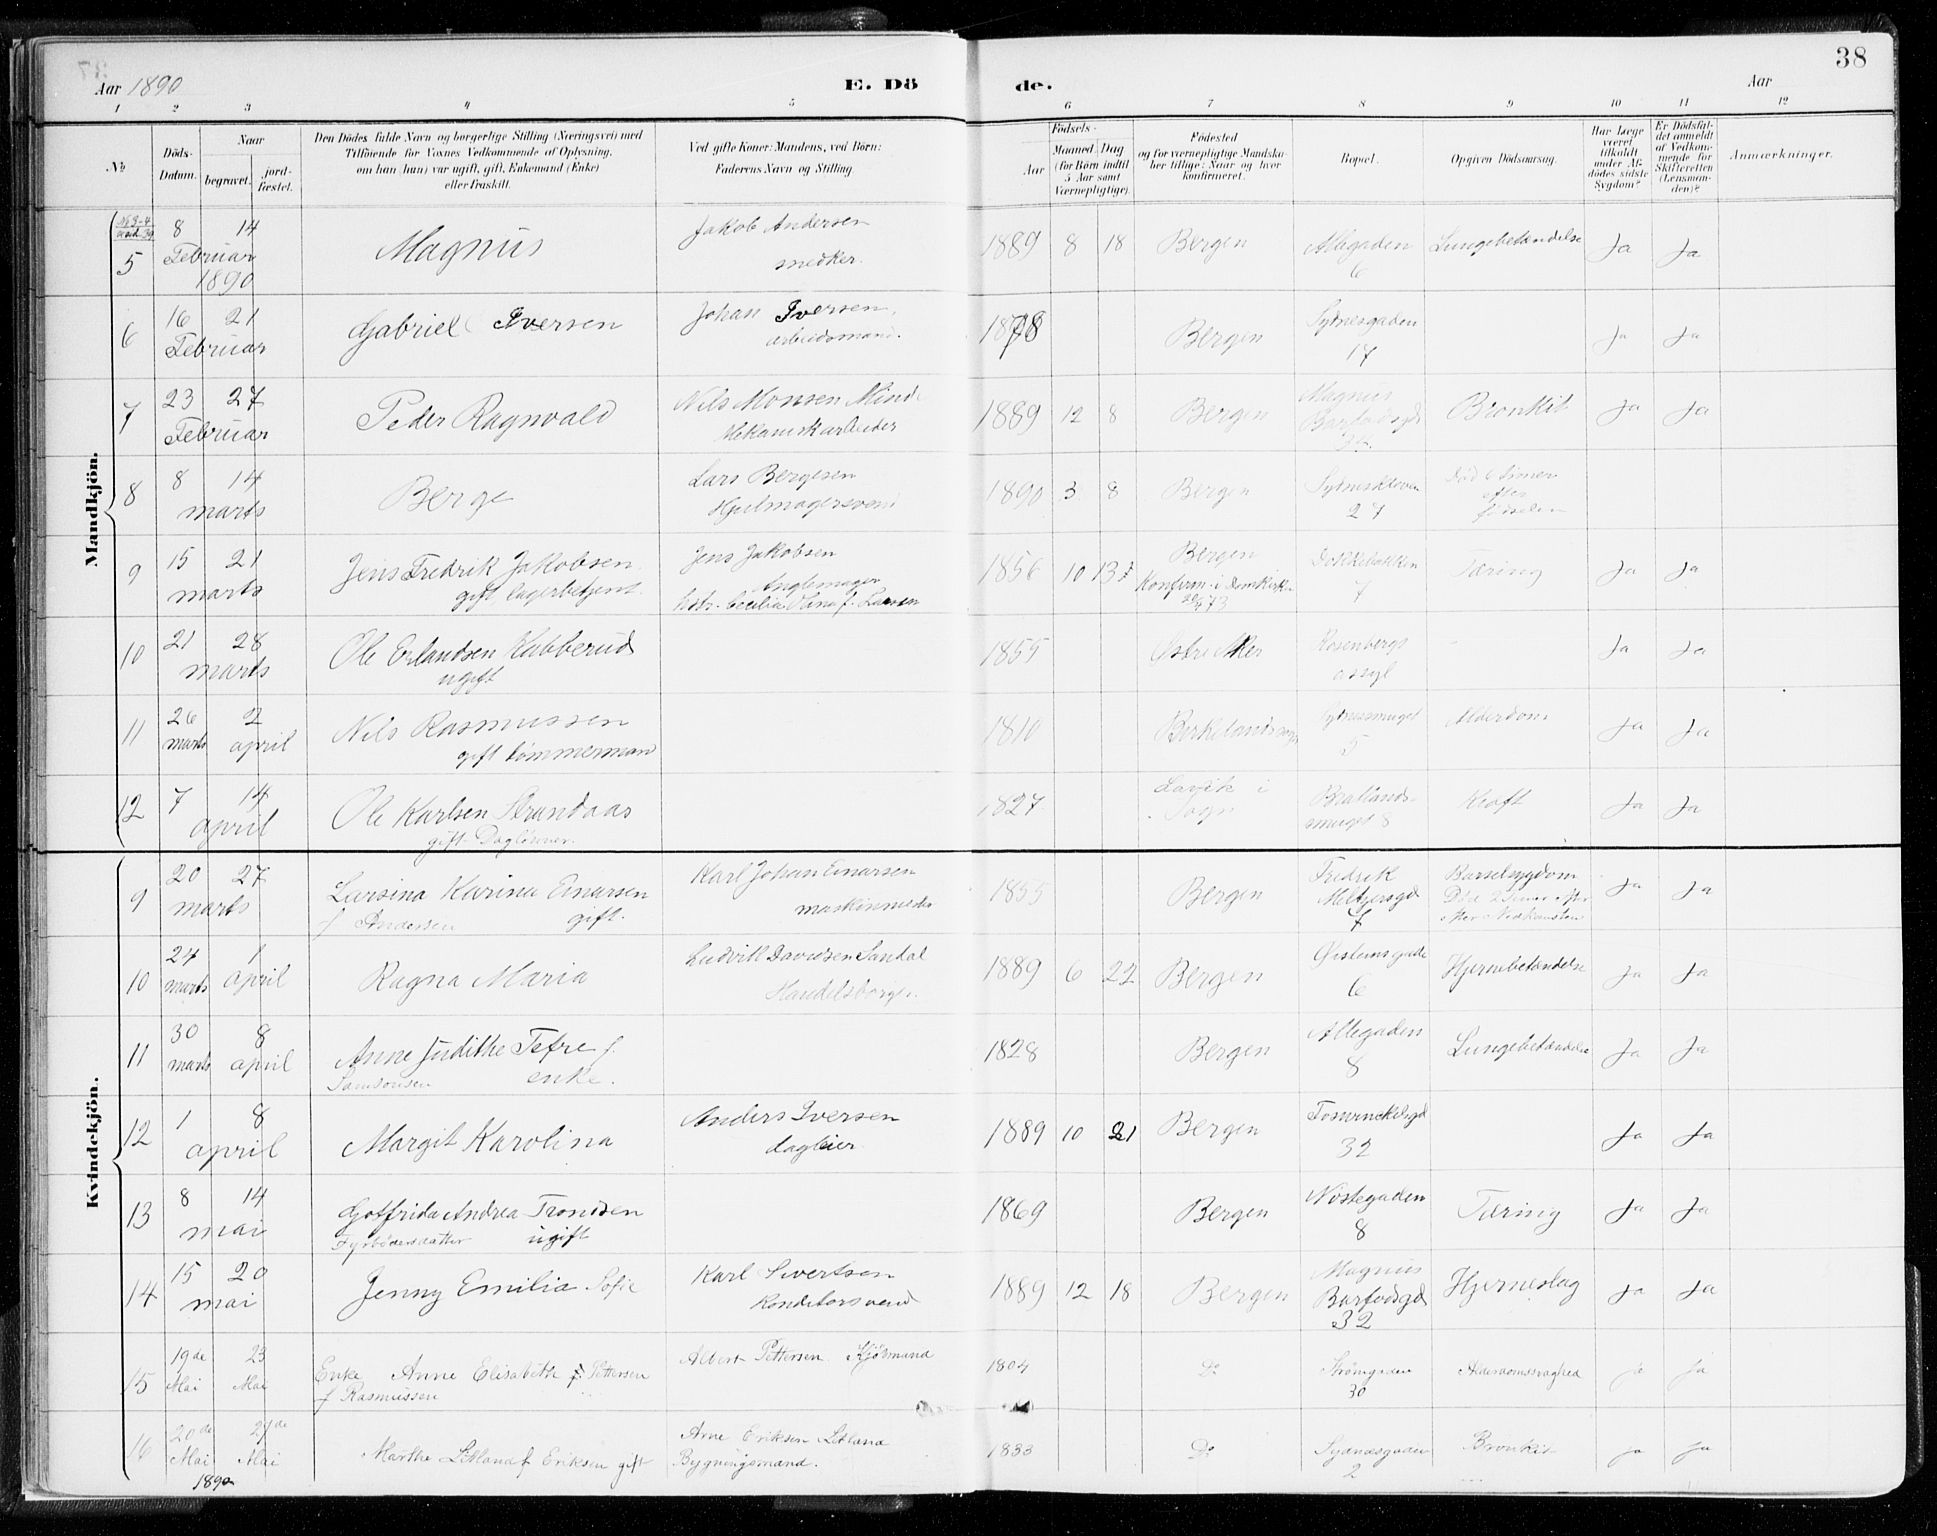 38
Aar 1890
E. Dö
de.
Aar
1 2 3 4 5 6 7 8 9 10 11 12
No
Döds-Datum.
Naar
begravet.
jordfæstet.
Den Dödes fulde Navn og borgerlige Stilling (Næringsvei) med
Tilföiende for Voxnes Vedkommende af Oplysning,
om han (hun) var ugift, gift, Enkemand (Enke)
eller fraskilt.
Ved gifte Koner: Mandens, ved Börn:
Faderens Navn og Stilling
Födsels-
Aar
Maaned. Dag
(for Börn indtil
5 Aar samt
Værnepligtige).
Födested
og for værnepligtige Mandskaber tillige: Naar og hvor
konfirmeret.
Bopæl.
Opgiven Dödsaarsag.
Har Læge
været
tilkaldt
under Afdödes sidste
Sygdom?
Er Dödsfaldet anmeldt
af Vedkommende for
Skifteretten
(Lensmanden)?
Anmærkninger.
Mandkjön.
5 8 14 Februar 1890 Magnus Jakob Andersen snedker. 1889 8 18 Bergen Allegaden 6 Lungebetændelse Ja Ja
6 16 21 Februar Gabriel Iversen Johan Iversen, arbeidsmand. 1878 Bergen Sydnesgaden 17 Ja Ja
7 23 27 Februar Peder Ragnvald Nils Monsen Minde Mekanisk arbeider 1889 12 8 Bergen Magnus Barfodsgd Bronkit Ja Ja
8 8 14 marts Berge Lars Bergesen Hjulmagersvend 1890 3 8 Bergen Sydneskleven 27 Død 6 timer efter fødselen
9 15 21 marts Jens Fredrik Jakobsen gift, lagerbetjent. Jens Jakobsen 1856 10 13 Bergen Konfirm. i Domkirken 73 Dokkebakken 7 Tæring Ja Ja
10 21 28 marts Ole Erlandsen Kabberud ugift 1855 Østre Aker Rosenbergs asyl Ja Ja
11 26 marts 2 april Nils Rasmussen gift tømmermand 1810 Birkelands Sydnessmuget 5 Alderdom Ja Ja
12 7 14 april Ole Karlsen Strandaas gift. Daglønner. 1827 Lavik i Sogn smuget 8 Kræft Ja Ja
Kvindekjön.
9 20 27 marts Larsina Karina Einarsen f Andersen gift. Karl Johan Einarsen maskinmester 1855 Bergen Fredrik Meltzersgd 7 Barselsygdom Død 2 timer efter Nedkomsten Ja Ja
10 24 marts 1 april Ragna Maria Ludvik Davidsen Sandal Handelsborger. 1889 6 22 Bergen Øisteinsgade 6 Hjernebetændelse Ja Ja
11 30 marts 8 april Anne Judithe Tefre f. Samsonsen enke. 1828 Bergen Allegaden 8 Lungebetændelse Ja Ja
12 1 8 april Margit Karolina Anders Iversen dagleier. 1889 10 21 Bergen Tosvinckelsgd 32 Ja Ja
13 8 14 mai Gotfrida Andrea Trondsen Fyrbødersdatter ugift 1869 Bergen Nøstegaden 8 Tæring Ja Ja
14 15 20 mai Jenny Emilia Sofie Karl Sivertsen Konditorsvend 1889 12 18 Bergen Magnus Barfodsgd 32 Hjerneslag Ja Ja
15 19de Mai 23 Mai Enke Anne Elisabeth Pettersen f Rasmussen Albert Pettersen Kjøbmand 1804 Do Strømgaden 30 Alderdomssvaghed ja ja
16 20de Mai 27de Mai Marthe Litland f Eriksen gift Arne Eriksen Litland Bygningsmand. 1833 Do Sydnæsgaden 2 Bronkit ja ja
1890